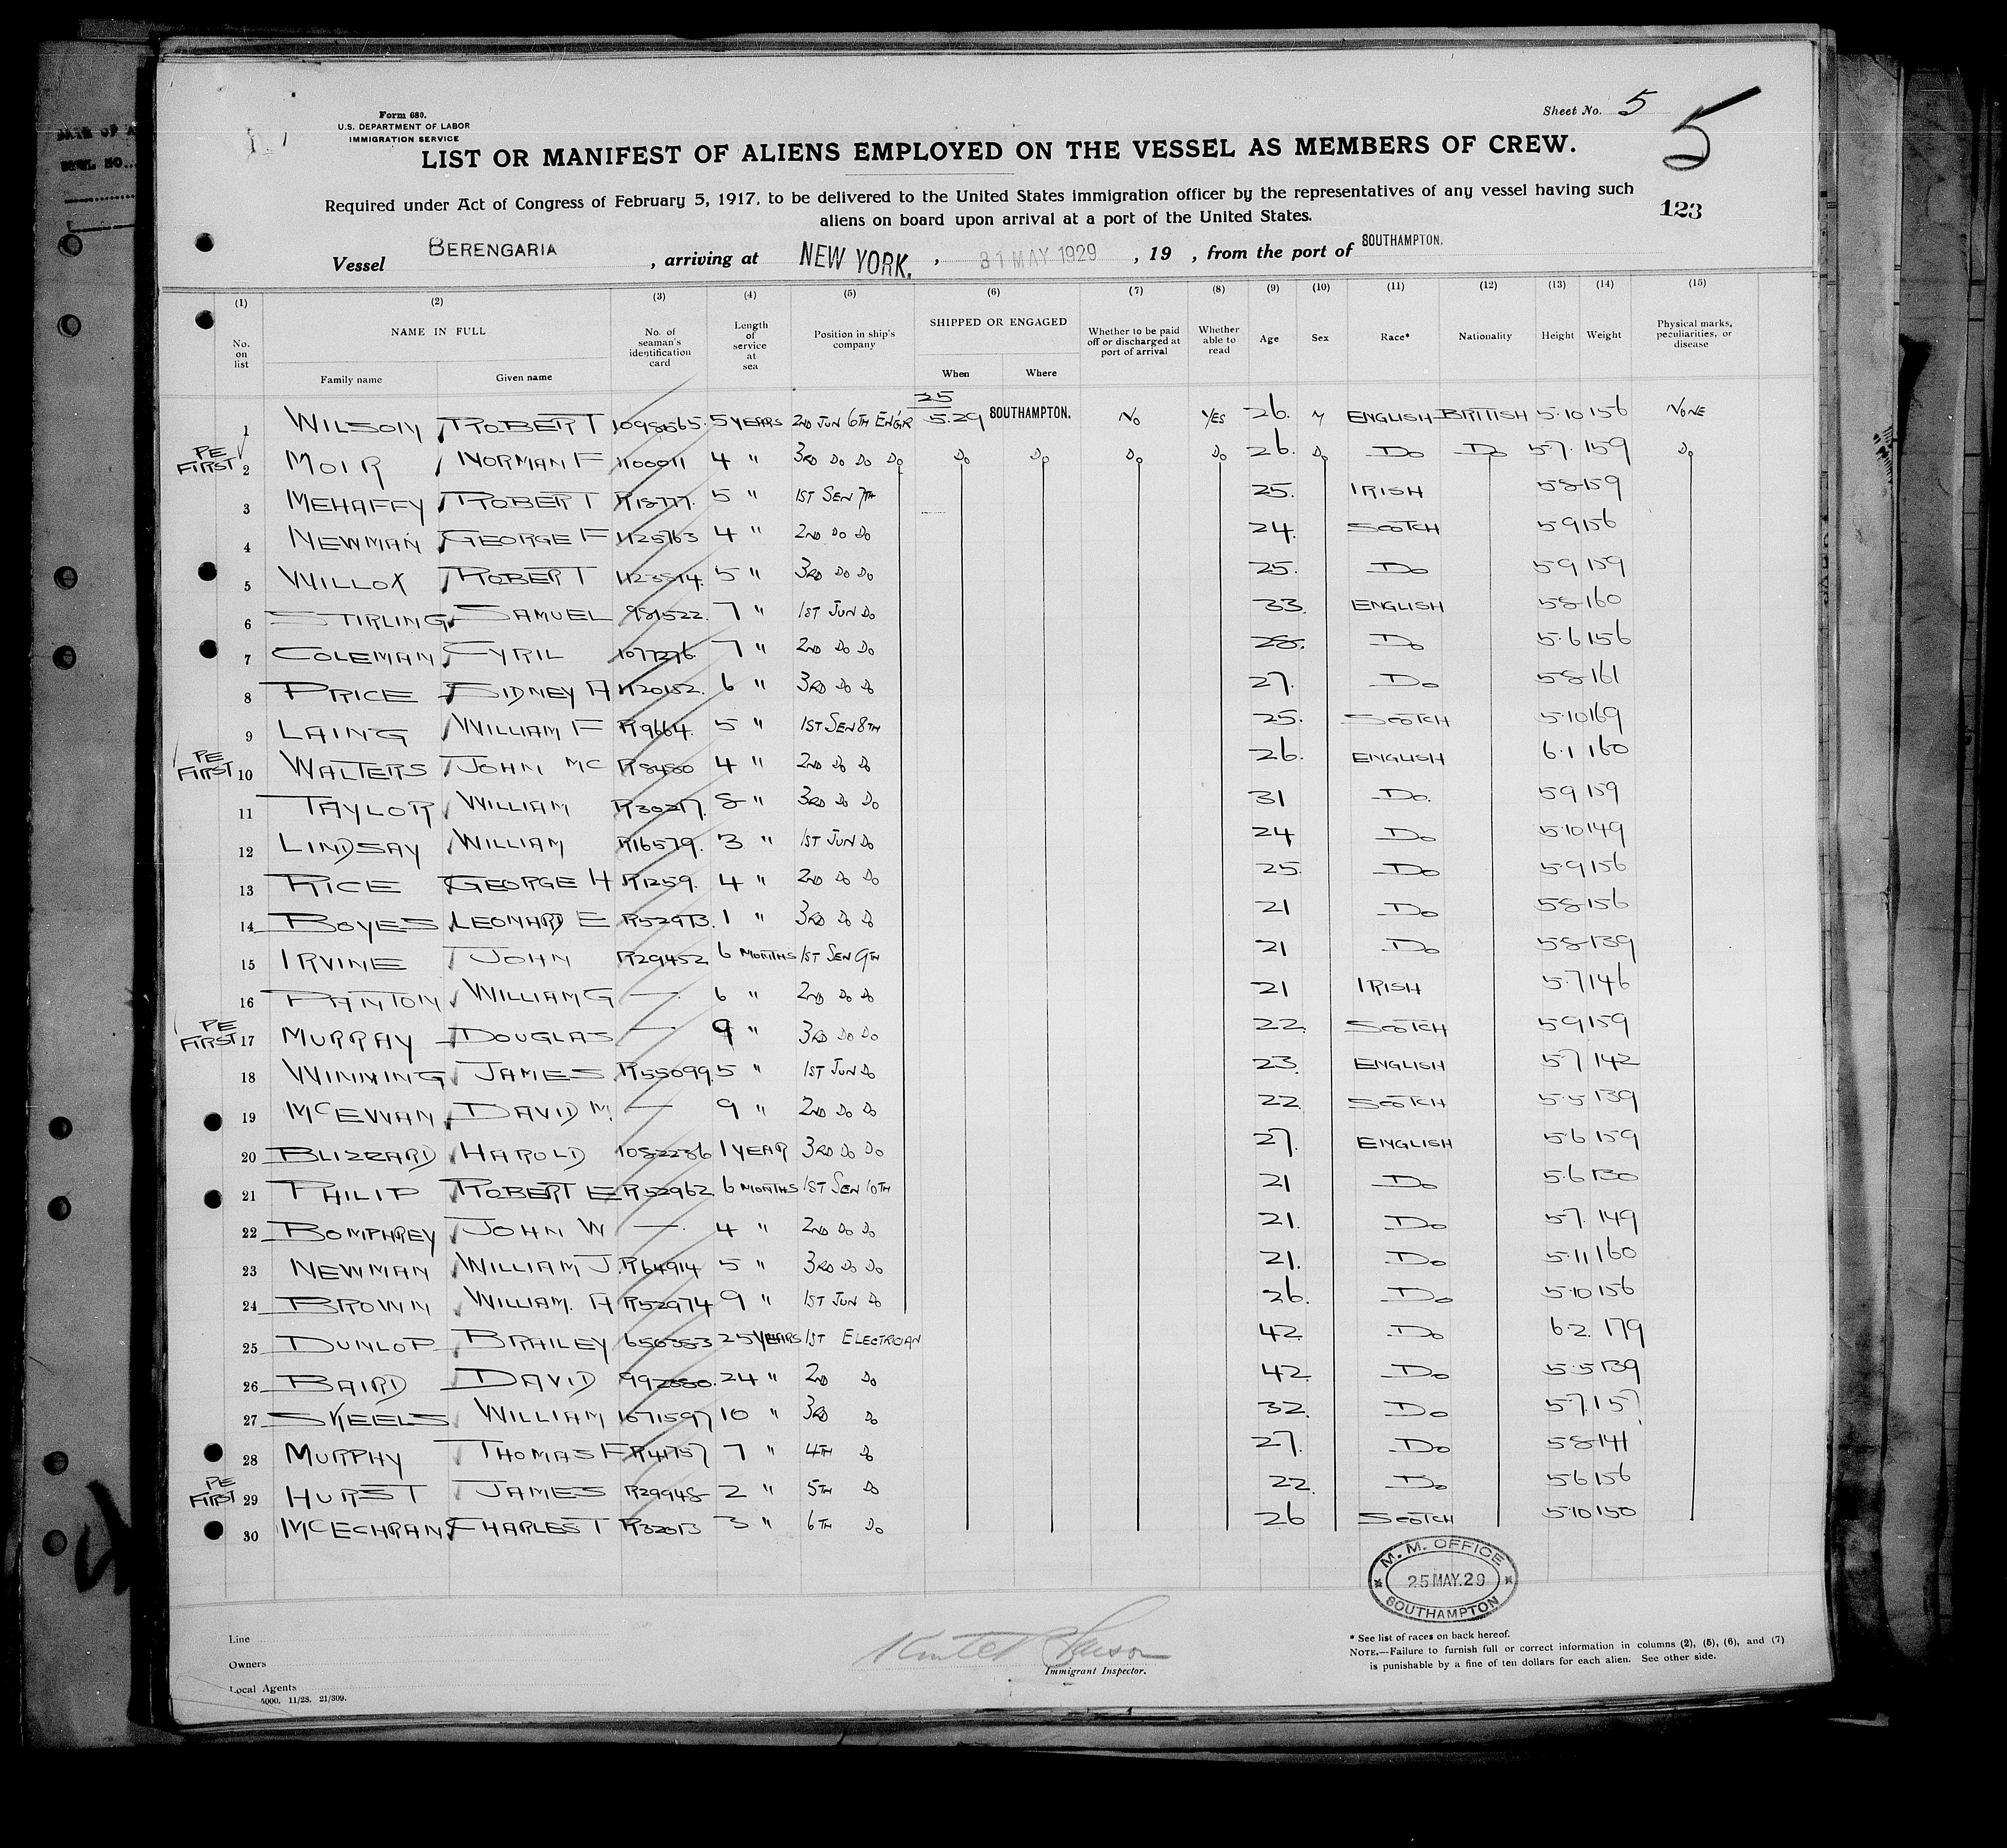 Form 680.
U.S. DEPARTMENT OF LABOR
IMMIGRATION SERVICE
Sheet No. 5
5
LIST OR MANIFEST OF ALIENS EMPLOYED ON THE VESSEL AS MEMBERS OF CREW.
Required under Act of Congress of February 5, 1917, to be delivered to the United States immigration officer by the representatives of any vessel having such
aliens on board upon arrival at a port of the United States.
123
Vessel BERENGARIA , arriving at NEW YORK. , 31 MAY 1929 , 19 , from the port of SOUTHAMPTON.
(1) (2) (3) (4) (5) (6) (7) (8) (9) (10) (11) (12) (13) (14) (15)
No. on list NAME IN FULL Family name Given name No. of seaman's identification card Length of service at sea Position in ship's company SHIPPED OR ENGAGED When Where Whether to be paid off or discharged at port of arrival Whether able to read Age Sex Race* Nationality Height Weight Physical marks, peculiarities, or disease
1 WILSON ROBERT 1098565. 5 YEARS 2ND JUN 6TH ENG'R 25 5.29 SOUTHAMPTON. NO YES 26. M ENGLISH BRITISH 5.10 156 NONE
PE FIRST 2 MOIR NORMAN F 1100011 4 " 3RD DO DO DO DO DO DO DO 26. DO DO DO 5.7. 159 DO
3 MEHAFFY ROBERT R18777. 5 " 1ST SEN 7TH 25. IRISH 5.8 159
4 NEWMAN GEORGE F 1125763 4 " 2ND DO DO 24. SCOTCH 5.9 156
5 WILLOX ROBERT 5 " 3RD DO DO 25. DO 5.9 159
6 STIRLING SAMUEL 981522. 7 " 1ST JUN DO 33. ENGLISH 5.8 160
7 COLEMAN CYRIL 1077276 7 " 2ND DO DO 28. DO 5.6 156
8 PRICE SIDNEY A 1120152. 6 " 3RD DO DO 27. DO 5.8 161
9 LAING WILLIAM F R9664. 5 " 1ST SEN 8TH 25. SCOTCH 5.10 169
PE FIRST 10 WALTERS JOHN MC R8480 4 " 2ND DO DO 26. ENGLISH 6.1 160
11 TAYLOR WILLIAM R30217. 8 " 3RD DO DO 31 DO. 5.9 159
12 LINDSAY WILLIAM R16579. 3 " 1ST JUN DO 24 DO 5.10 149
13 RICE GEORGE H R1259. 4 " 2ND DO DO 25. DO 5.9 156
14 BOYES LEONARD E R52973. 1 " 3RD DO DO 21 DO 5.8 156
15 IRVINE JOHN R29452 6 MONTHS 1ST SEN 9TH 21 DO 5.8 139
16 PANTON WILLIAM G — 6 " 2ND DO DO 21 IRISH 5.7 146
PE FIRST 17 MURRAY DOUGLAS — 9 " 3RD DO DO 22. SCOTCH 5.9 159
18 WINNING JAMES R55099. 5 " 1ST JUN DO 23. ENGLISH 5.7 142
19 MCEWAN DAVID M. — 9 " 2ND DO DO 22. SCOTCH 5.5 139
20 BLIZZARD HAROLD 1082286 1 YEAR 3RD DO DO 27. ENGLISH 5.6 159
21 PHILIP ROBERT E R52962 6 MONTHS 1ST SEN 10TH 21 DO 5.6 130
22 BOMPHREY JOHN W — 4 " 2ND DO DO 21. DO 5.7. 149
23 NEWMAN WILLIAM J. R64914 5 " 3RD DO DO 21. DO 5.11 160
24 BROWN WILLIAM. A R52974 9 " 1ST JUN DO 26. DO 5.10 156
25 DUNLOP BRAILEY 656353 25 YEARS 1ST ELECTRICIAN 42. DO 6.2. 179
26 BAIRD DAVID 24 " 2ND DO 42. DO 5.5 139
27 SKEELS WILLIAM 1071597 10 " 3RD DO 32. DO 5.7. 157
28 MURPHY THOMAS F R41757 7 " 4TH DO 27. DO 5.8 141
PE FIRST 29 HURST JAMES R29948 2 " 5TH DO 22. DO 5.6 156
30 MCECHRAN CHARLES T R32073 3 " 6TH DO 26 SCOTCH 5.10 150
M. M. OFFICE
25 MAY. 29
SOUTHAMPTON
Line
Owners
Local Agents
5000. 11/28. 21/309.
Immigrant Inspector.
* See list of races on back hereof.
NOTE.—Failure to furnish full or correct information in columns (2), (5), (6), and (7)
is punishable by a fine of ten dollars for each alien. See other side.